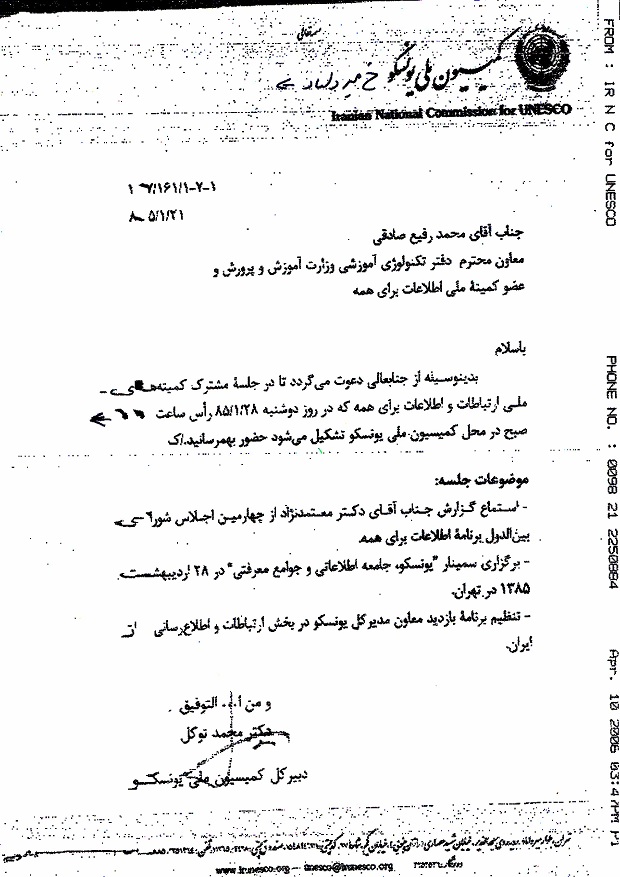 بسمه‌تعالی
کمیسیون ملی یونسکو
Iranian National Commission for UNESCO
۸۵/۱/۲۱
جناب آقای محمد رفیع صادقی
معاون محترم دفتر تکنولوژی آموزشی وزارت آموزش و پرورش و
عضو کمیتهٔ ملی اطلاعات برای همه
باسلام
بدینوسیله از جنابعالی دعوت می‌گردد تا در جلسهٔ مشترک کمیته‌های
ملی ارتباطات و اطلاعات برای همه که در روز دوشنبه ۸۵/۱/۲۸ رأس ساعت
صبح در محل کمیسیون ملی یونسکو تشکیل می‌شود حضور بهم‌رسانید.
موضوعات جلسه:
- استماع گزارش جناب آقای دکتر معتمدنژاد از چهارمین اجلاس شورای
بین‌الدول برنامهٔ اطلاعات برای همه.
- برگزاری سمینار "یونسکو، جامعه اطلاعاتی و جوامع معرفتی" در ۲۸ اردیبهشت
۱۳۸۵ در تهران.
- تنظیم برنامهٔ بازدید معاون مدیرکل یونسکو در بخش ارتباطات و اطلاع‌رسانی از
ایران.
و من ا... التوفیق
دکتر محمد توکل
دبیرکل کمیسیون ملی یونسکو
www.irunesco.org — unesco@irunesco.org
FROM : IR N C for UNESCO
PHONE NO. : 0098 21 2250884
Apr. 10 2006 03:4 P1